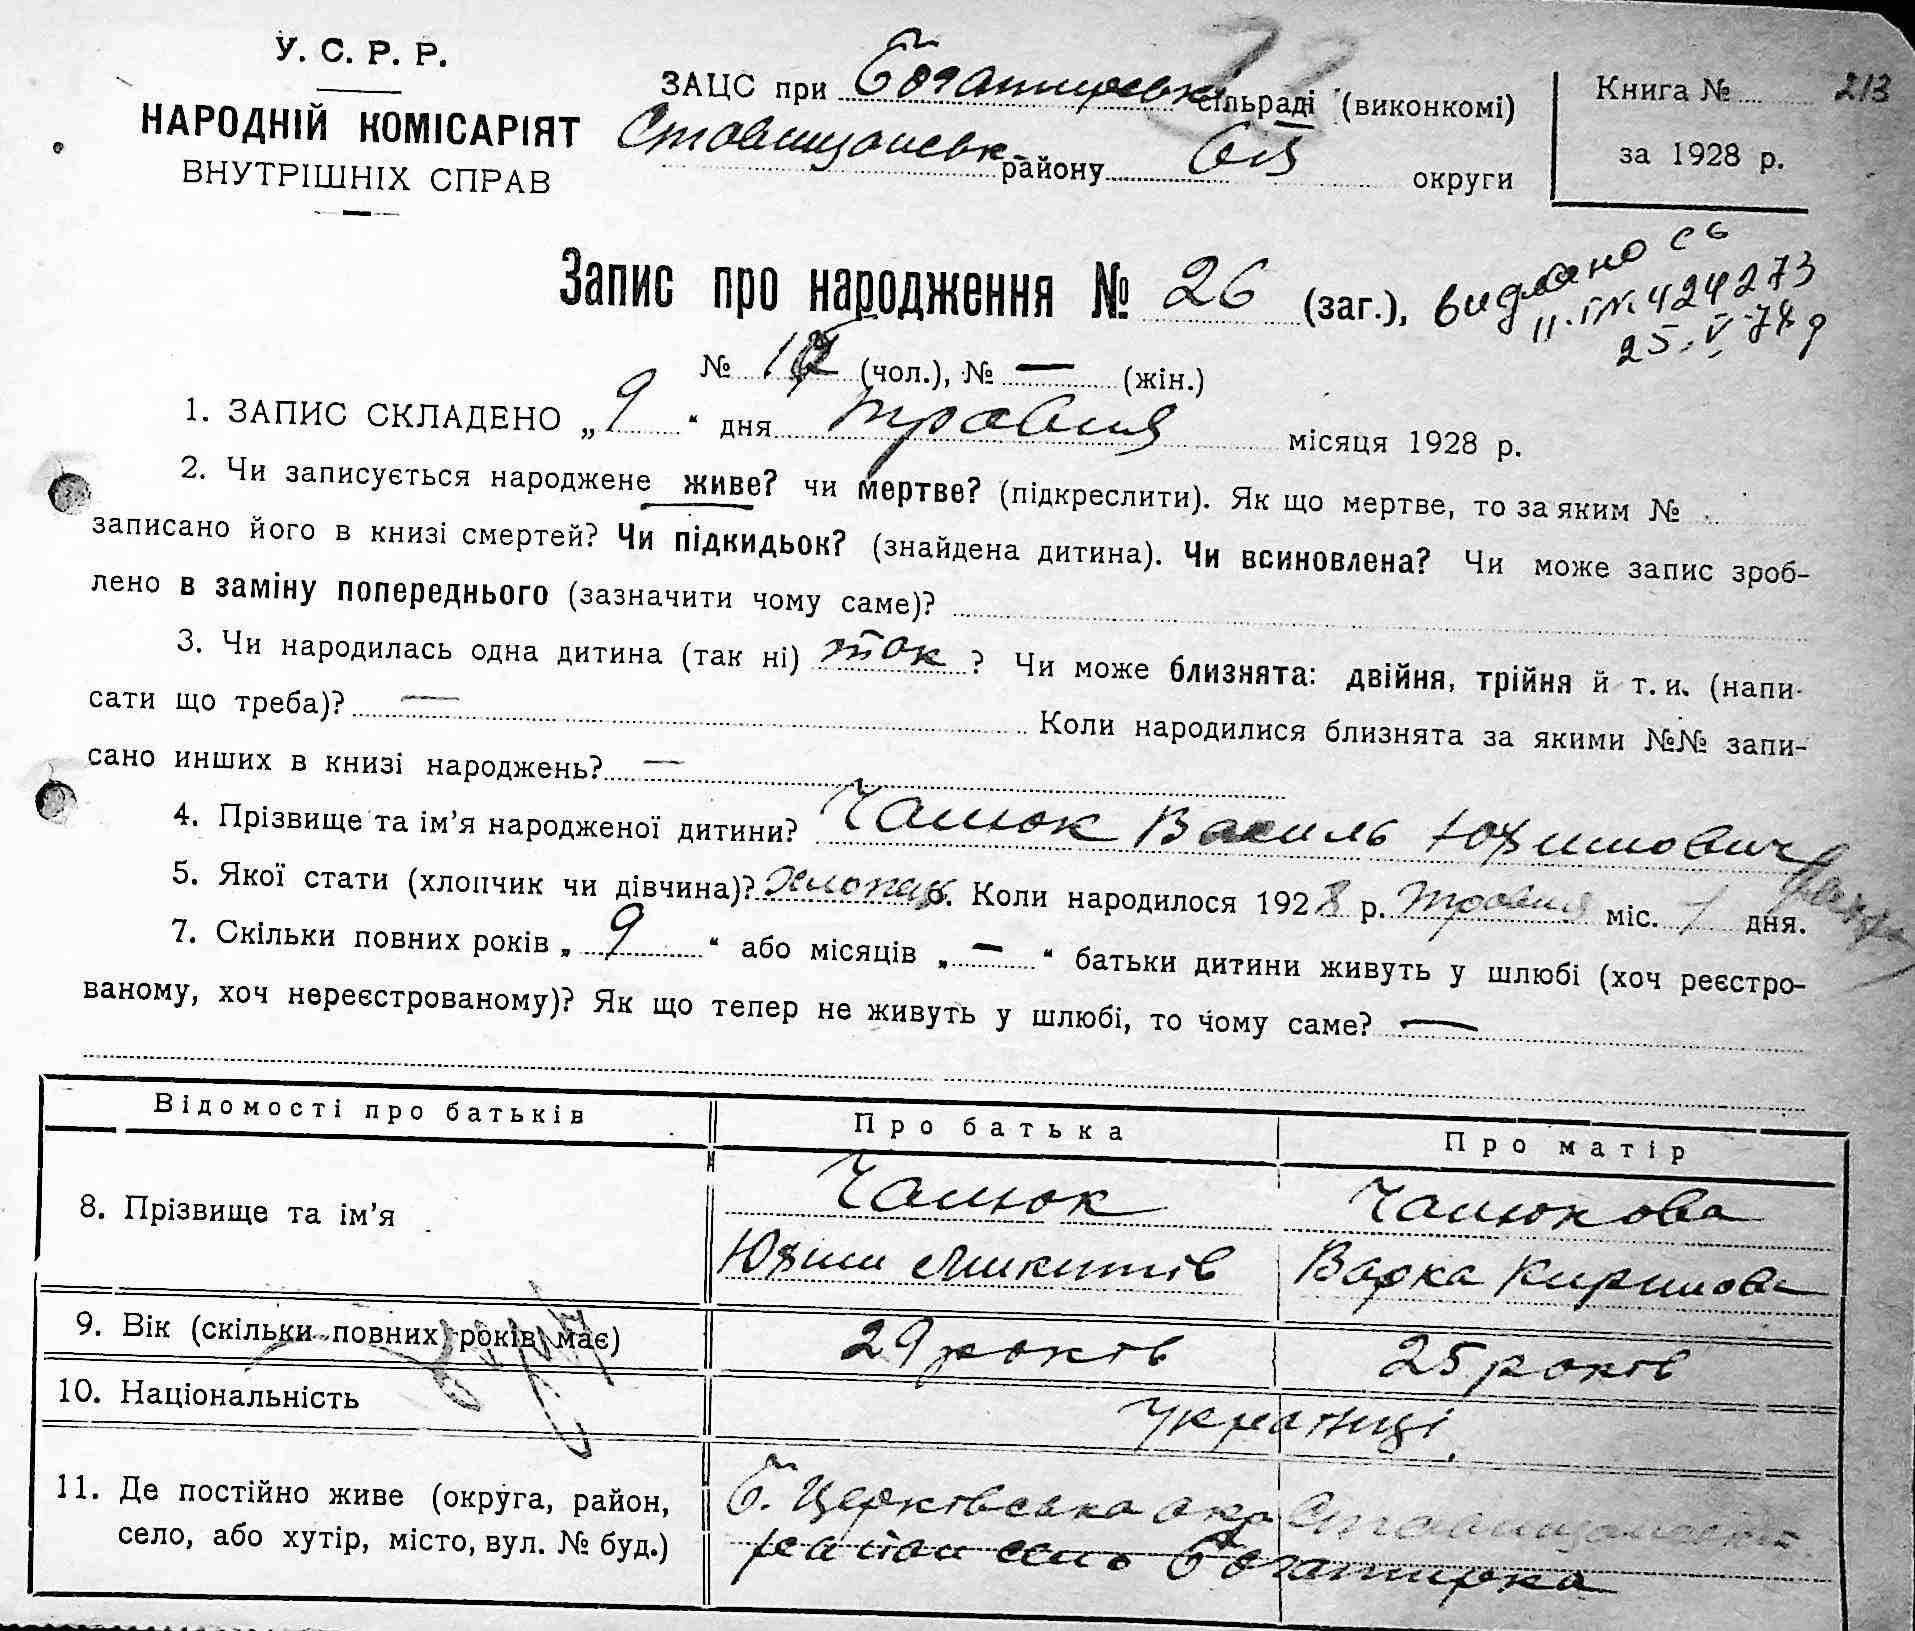 У. С. Р. Р.
НАРОДНІЙ КОМІСАРІЯТ
ВНУТРІШНІХ СПРАВ
ЗАЦС при Богатирськ. сільраді (виконкомі)
Ставищанськ району БЦ округи
Книга № 213
за 1928 р.
Запис про народження № 26 (заг.),
видано св
II. ІМ. 424273
25.V.78 р
№ (чол.), № — (жін.)
1. ЗАПИС СКЛАДЕНО „9“ дня травня місяця 1928 р.
2. Чи записується народжене живе? чи мертве? (підкреслити). Як що мертве, то за яким №
записано його в книзі смертей? Чи підкидьок? (знайдена дитина). Чи всиновлена? Чи може запис зроб-
лено в заміну попереднього (зазначити чому саме)?
3. Чи народилась одна дитина (так ні) так ? Чи може близнята: двійня, трійня й т. и. (напи-
сати що треба)? — Коли народилися близнята за якими №№ запи-
сано инших в книзі народжень? —
4. Прізвище та ім'я народженої дитини? Чанюк Василь Юхимович
5. Якої стати (хлопчик чи дівчина)? хлопець 6. Коли народилося 1928 р. травня міс. 1 дня.
7. Скільки повних років „9“ або місяців „—“ батьки дитини живуть у шлюбі (хоч реєстро-
ваному, хоч нереєстрованому)? Як що тепер не живуть у шлюбі, то чому саме? —
Відомості про батьків Про батька Про матір
8. Прізвище та ім'я Чанюк Чанюкова
Юхим Микитів Варка Кирилова
9. Вік (скільки повних років має) 29 років 25 років
10. Національність українці
11. Де постійно живе (округа, район,
село, або хутір, місто, вул. № буд.)
Б. Церківська окр Ставищанський
район село Богатирка